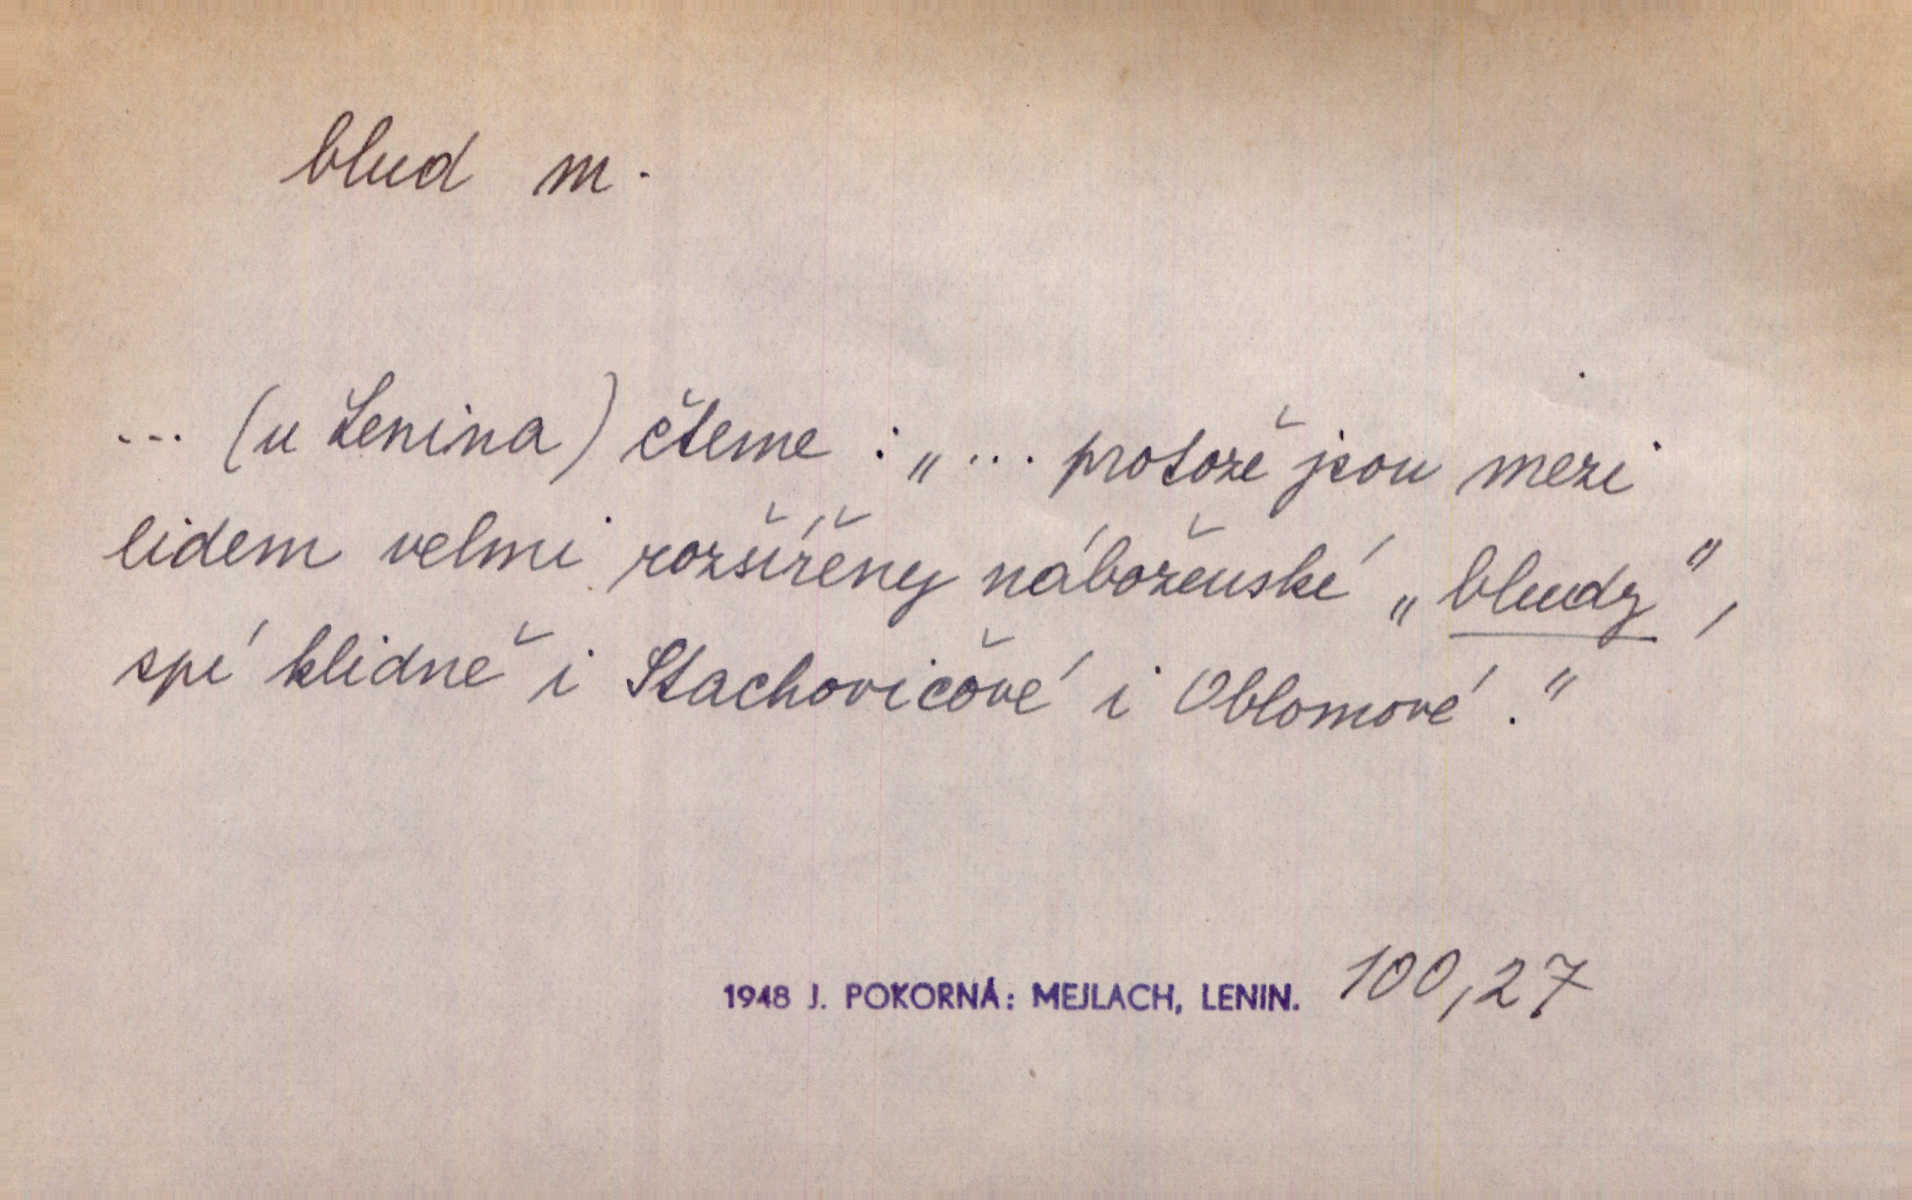 blud m.
... (u Lenina) čteme : „... protože jsou mezi
lidem velmi rozšířeny náboženské „bludy“,
spí klidně i Stachovičové i Oblomové.“
1948 J. POKORNÁ: MEJLACH, LENIN. 100,27